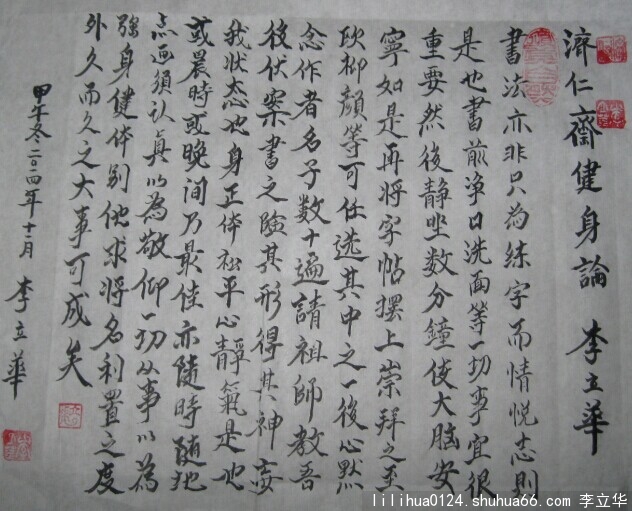 濟仁齋健身論 李立華
書法亦非只为练字而情悦志則
是也書前净口洗面等一切事宜很
重要然後静坐数分鐘使大脑安
寧如是再將字帖摆上崇拜之至
欧柳顔等可任选其中之一後心默
念作者名子数十遍請祖師教吾
後伏案書之險其形得其神妄
我状态也身正体松平心靜氣是也
或晨時或晚间乃最佳亦随時随地
点画须认真以為敬仰一切从事以為
强身健体别他求將名利置之度
外久而久之大事可成矣
甲午冬二〇一四年十一月 李立華
lilihua0124.shuhua66.com 李立华